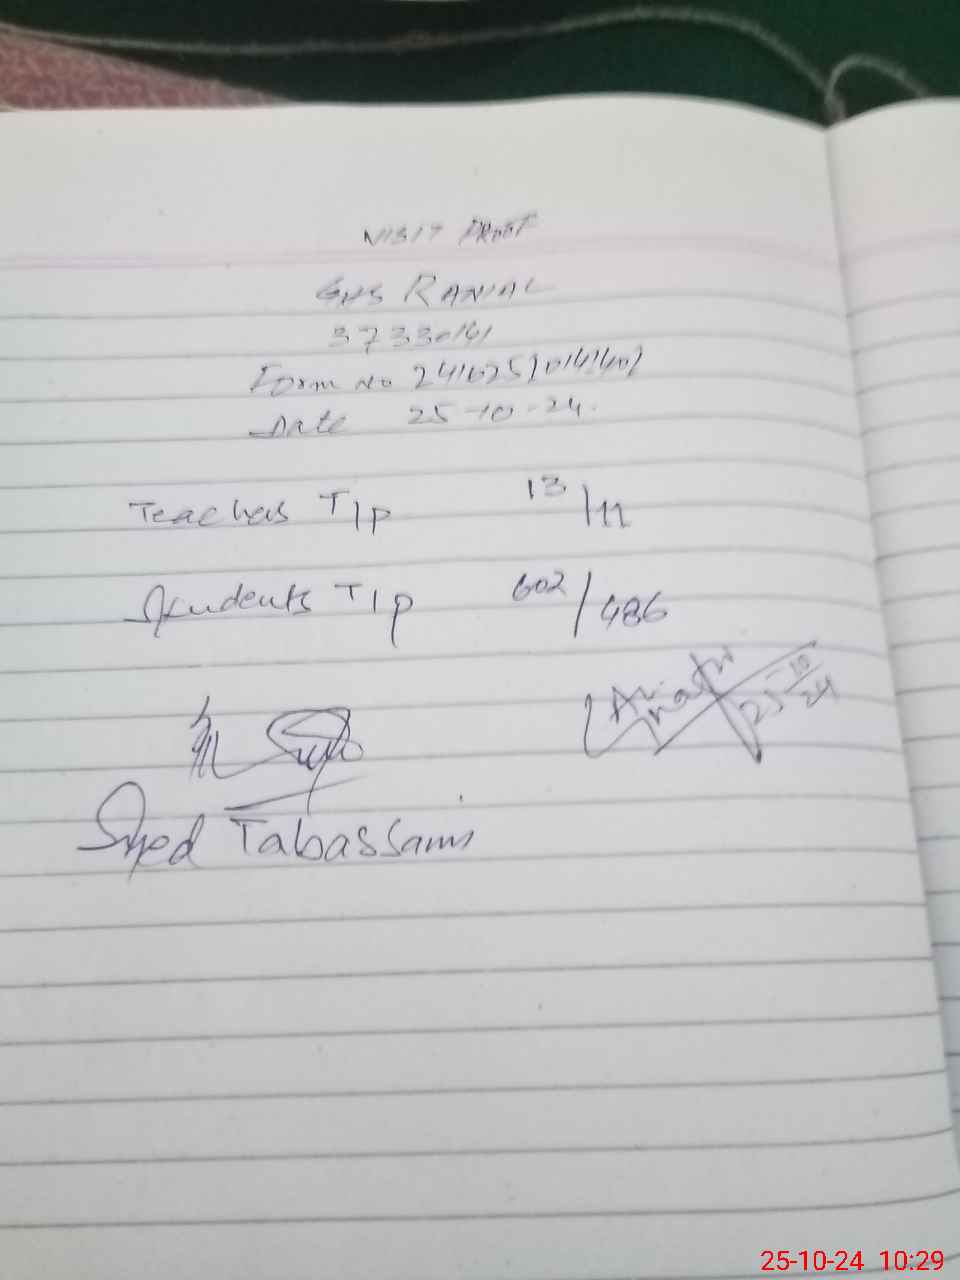 VISIT PROOF
GHS RANIAL
37330141
Form No 24102510141401
Date 25-10-24.
Teachers T/P 13/11
Students T/P 602/486
25-10-24
Syed Tabassam
25-10-24 10:29